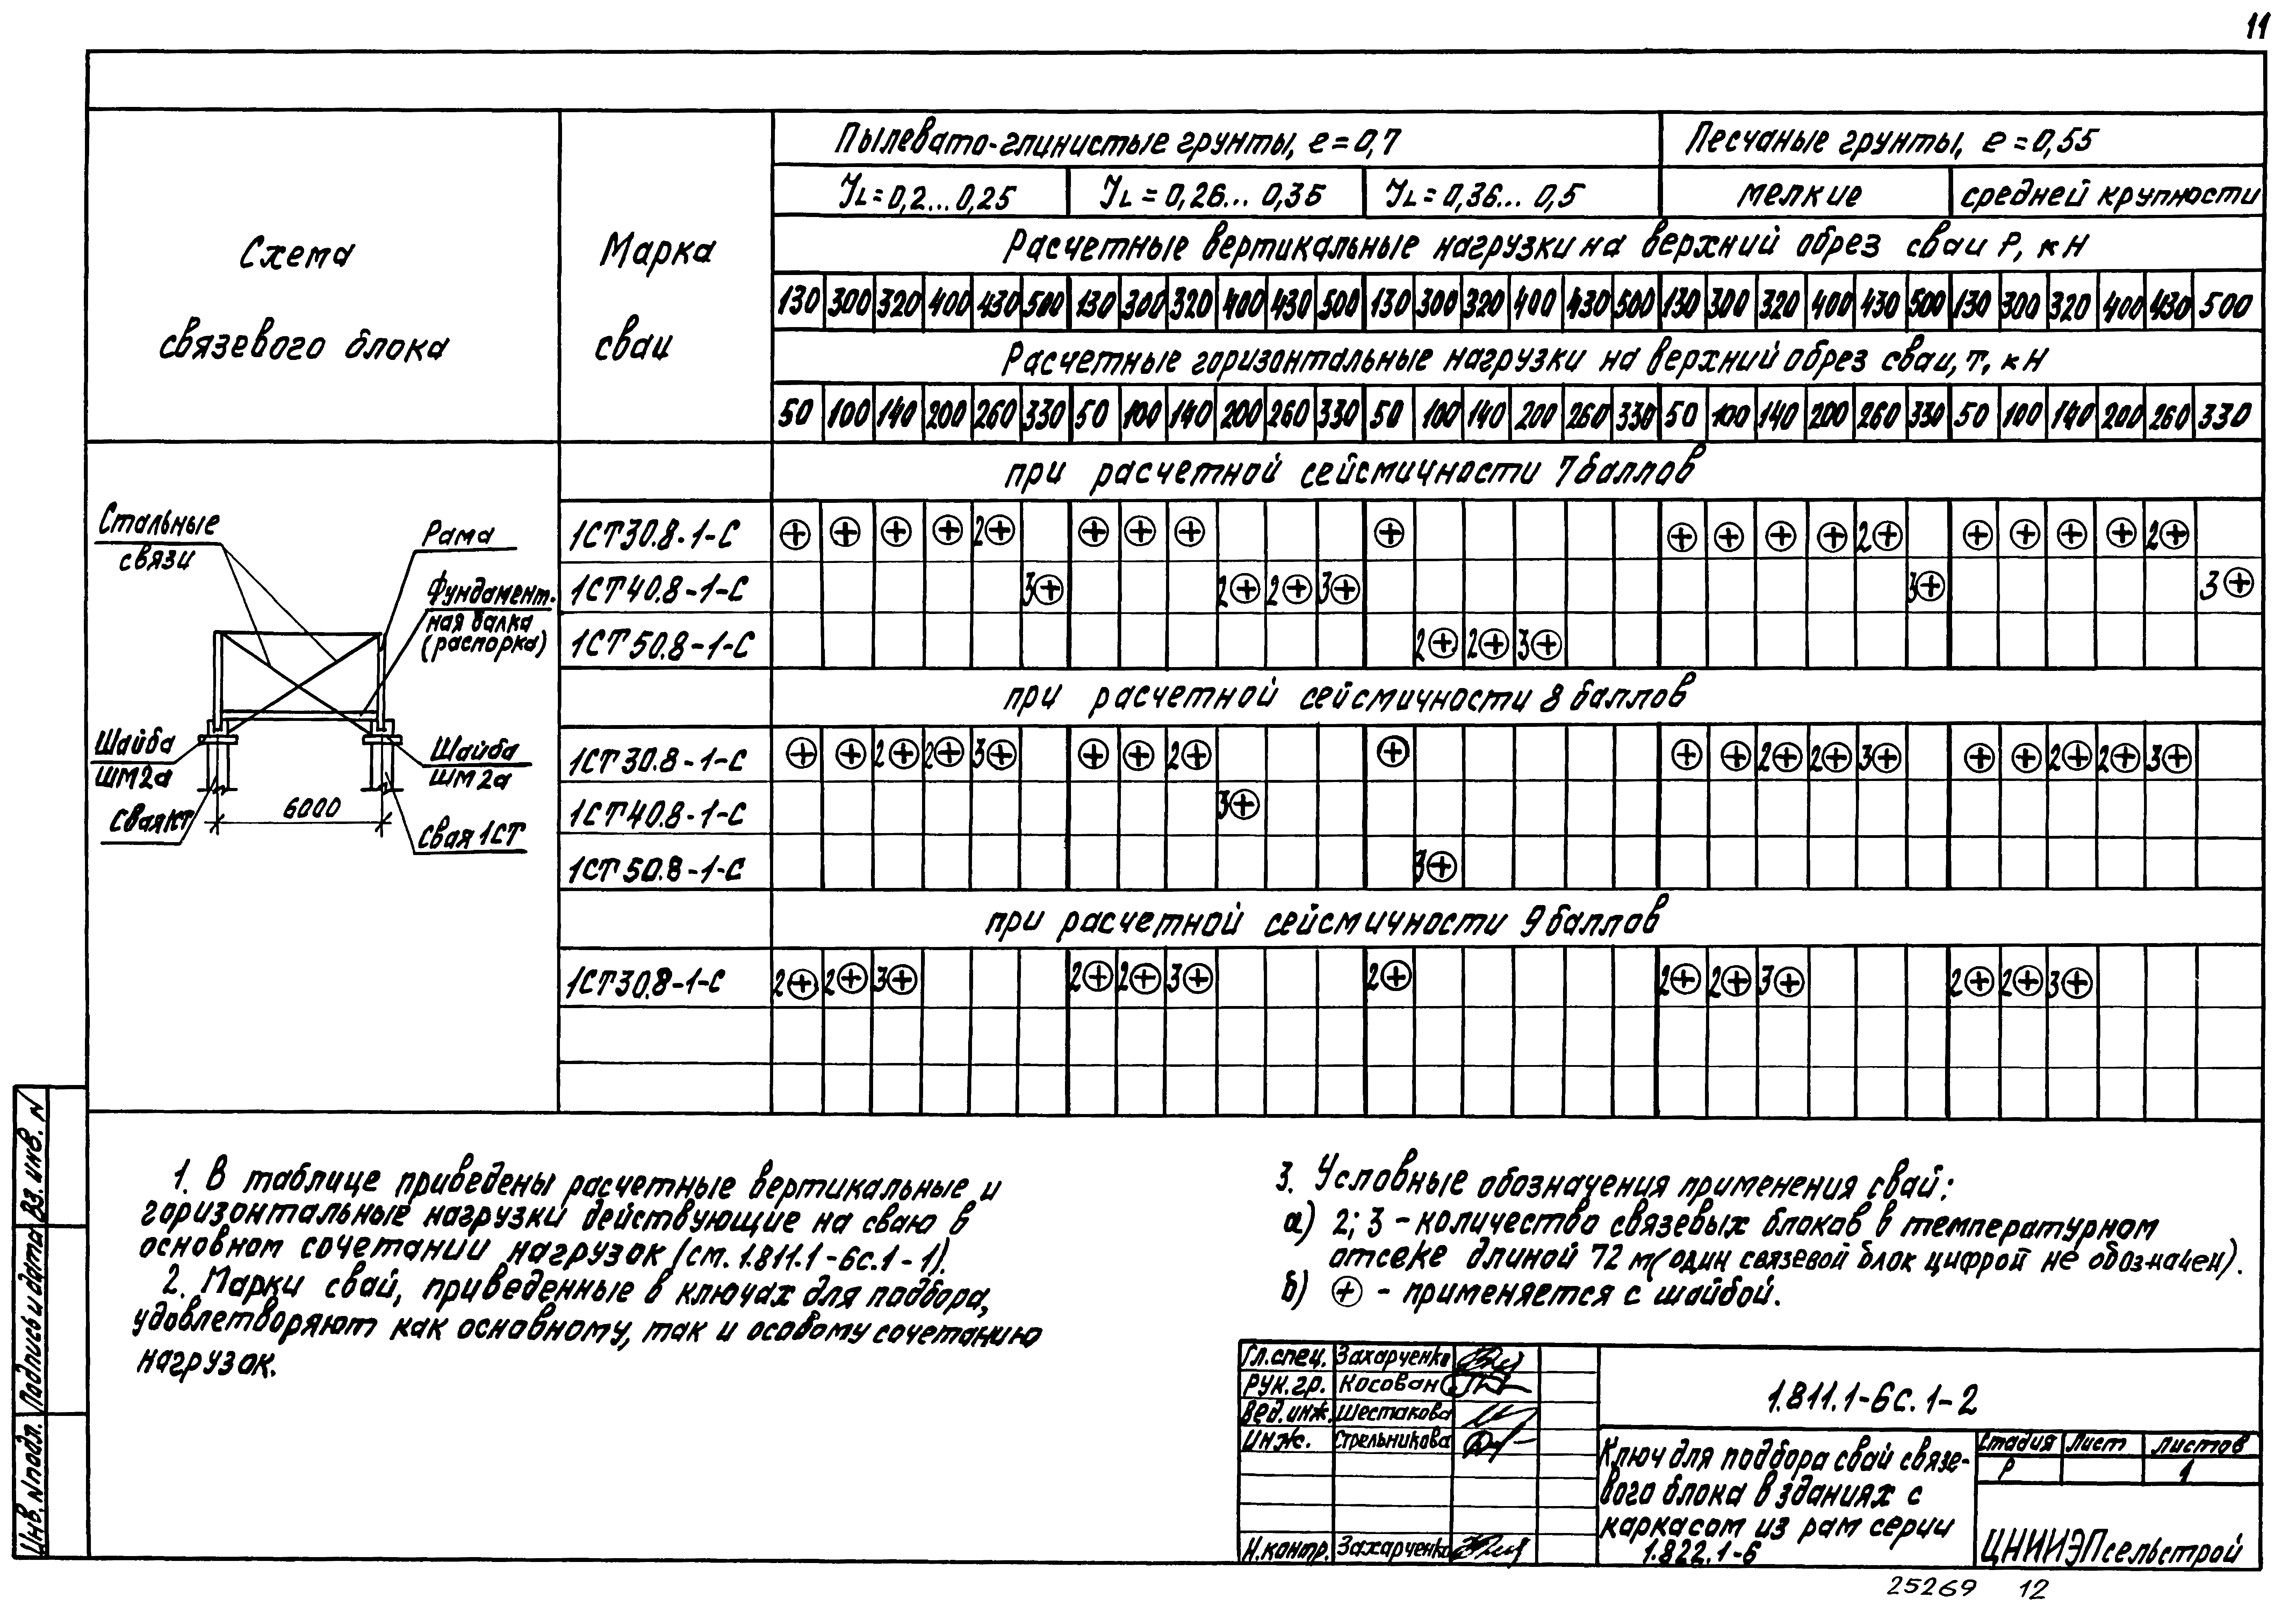 11
Пылевато-глинистые грунты, e=0,7
Песчаные грунты, e=0,55
JL=0,2...0,25
JL=0,26...0,35
JL=0,36...0,5
мелкие
средней крупности
Схема
связевого блока
Марка
сваи
Расчетные вертикальные нагрузки на верхний обрез сваи P, кН
130 300 320 400 430 500 130 300 320 400 430 500 130 300 320 400 430 500 130 300 320 400 430 500 130 300 320 400 430 500
Расчетные горизонтальные нагрузки на верхний обрез сваи, т, кН
50 100 140 200 260 330 50 100 140 200 260 330 50 100 140 200 260 330 50 100 140 200 260 330 50 100 140 200 260 330
при расчетной сейсмичности 7 баллов
1СТ30.8-1-С ⊕ ⊕ ⊕ ⊕ 2⊕ ⊕ ⊕ ⊕ ⊕ ⊕ ⊕ ⊕ ⊕ 2⊕ ⊕ ⊕ ⊕ ⊕ 2⊕
1СТ40.8-1-С 3⊕ 2⊕ 2⊕ 3⊕ 3⊕ 3⊕
1СТ50.8-1-С 2⊕ 2⊕ 3⊕
при расчетной сейсмичности 8 баллов
1СТ30.8-1-С ⊕ ⊕ 2⊕ 2⊕ 3⊕ ⊕ ⊕ 2⊕ ⊕ ⊕ ⊕ 2⊕ 2⊕ 3⊕ ⊕ ⊕ 2⊕ 2⊕ 3⊕
1СТ40.8-1-С 3⊕
1СТ50.8-1-С 3⊕
при расчетной сейсмичности 9 баллов
1СТ30.8-1-С 2⊕ 2⊕ 3⊕ 2⊕ 2⊕ 3⊕ 2⊕ 2⊕ 2⊕ 3⊕ 2⊕ 2⊕ 3⊕
Стальные
связи
Рама
Фундамент-
ная балка
(распорка)
Шайба
ШМ2а
Шайба
ШМ2а
Свая 1СТ
6000
Свая 1СТ
1. В таблице приведены расчетные вертикальные и
горизонтальные нагрузки действующие на сваю в
основном сочетании нагрузок (см. 1.811.1-6с.1-1).
2. Марки свай, приведенные в ключах для подбора,
удовлетворяют как основному, так и особому сочетанию
нагрузок.
3. Условные обозначения применения свай:
а) 2; 3 - количество связевых блоков в температурном
отсеке длиной 72 м (один связевой блок цифрой не обозначен).
б) ⊕ - применяется с шайбой.
Гл.спец. Захарченко
Рук.гр. Косован
Вед.инж. Шестакова
Инж. Стрельникова
Н.контр. Захарченко
1.811.1-6с.1-2
Ключ для подбора свай связе-
вого блока в зданиях с
каркасом из рам серии
1.822.1-6
Стадия Лист Листов
Р 1
ЦНИИЭПсельстрой
Инв. N подл. Подпись и дата Вз. инв. N
25269 12